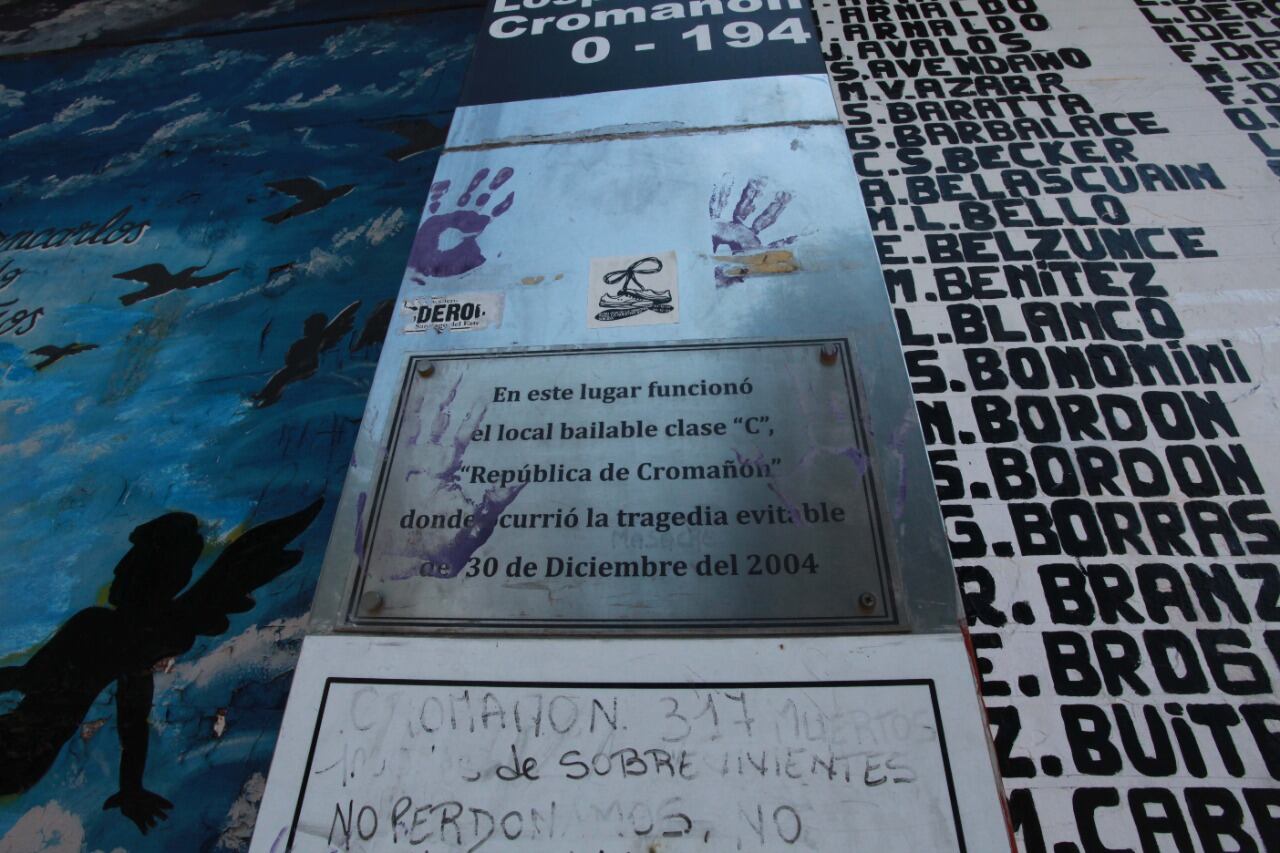 Cromañón
0 - 194
DERO
Santiago del Este
En este lugar funcionó
el local bailable clase “C”,
“República de Cromañón”
donde ocurrió la tragedia evitable
del 30 de Diciembre del 2004
MASACRE
CROMAÑON. 317 MUERTOS
de SOBREVIVIENTES
NO PERDONAMOS, NO
ARNALDO
ARNALDO
J. AVALOS
S. AVENDAÑO
M. V. AZARR
S. BARATTA
G. BARBALACE
C. S. BECKER
A. BELASCUAIN
M. L. BELLO
E. BELZUNCE
M. BENÍTEZ
L. BLANCO
S. BONOMiNi
N. BORDON
S. BORDON
G. BORRAS
R. BRANZ
E. BROG
Z. BUiTR
M. CABR